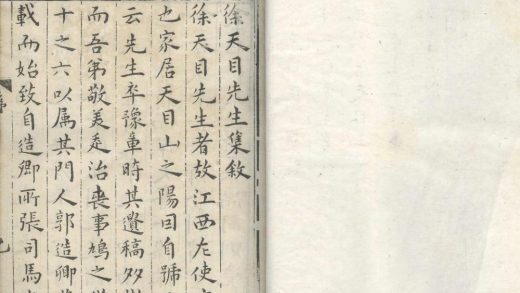 徐天目先生集敘
徐天目先生者故江西左使
也家居天目山之陽因自號
云先生卒豫章時其遺稿多
而吾弟敬美走治喪事鳩之
十之六以属其門人郭造卿
載而始致自造卿所張司馬